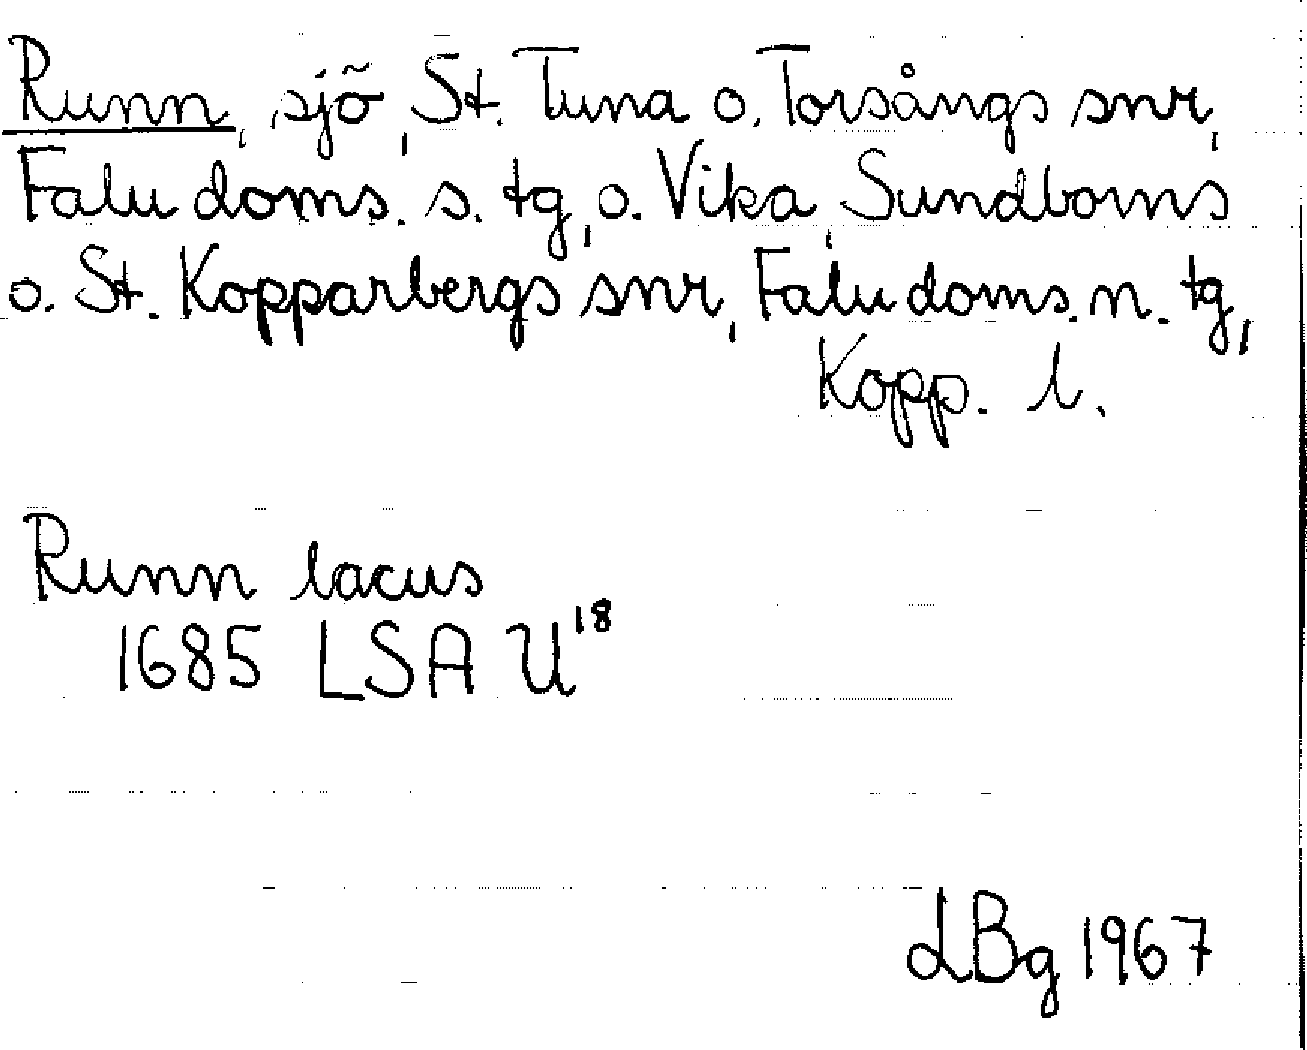 Runn, sjö, St. Tuna o. Torsångs snr,
Falu doms. s. tg, o. Vika, Sundborns
o. St. Kopparbergs snr, Falu doms. n. tg,
Kopp. l.
Runn lacus
1685 LSA U18
LBg 1967